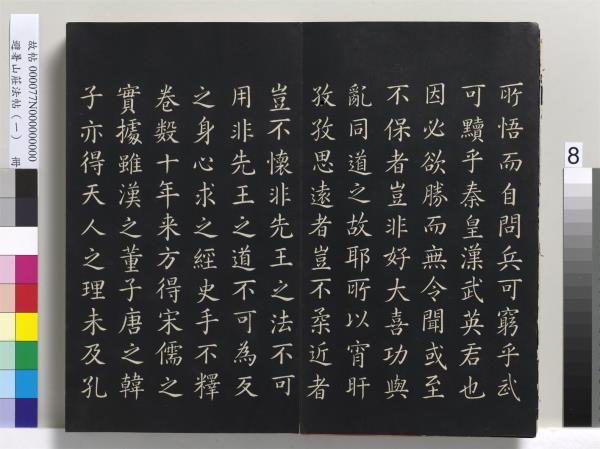 所悟而自問兵可窮乎武
可黷乎秦皇漢武英君也
因必欲勝而無令聞或至
不保者豈非好大喜功與
亂同道之故耶所以宵旰
孜孜思遠者豈不柔近者
豈不懷非先王之法不可
用非先王之道不可為反
之身心求之經史手不釋
卷數十年来方得宋儒之
實據雖漢之董子唐之韓
子亦得天人之理未及孔
故帖 000077N000000000
避暑山莊法帖（一） 冊
8